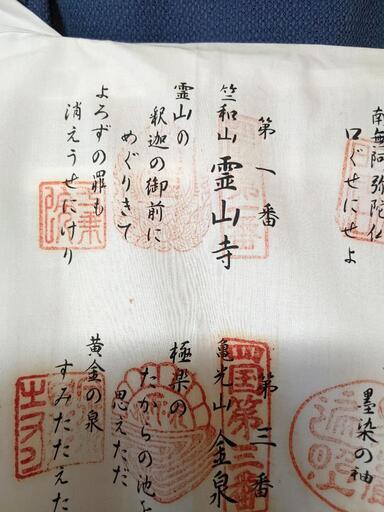 南無阿弥陀仏
口ぐせにせよ
第一番
竺和山 霊山寺
霊山の
釈迦の御前に
めぐりきて
よろずの罪も
消えうせにけり
墨染の袖
第三番
亀光山 金泉
四国第三番
極楽の
たからの池を
思えただ
黄金の泉
すみたたえた